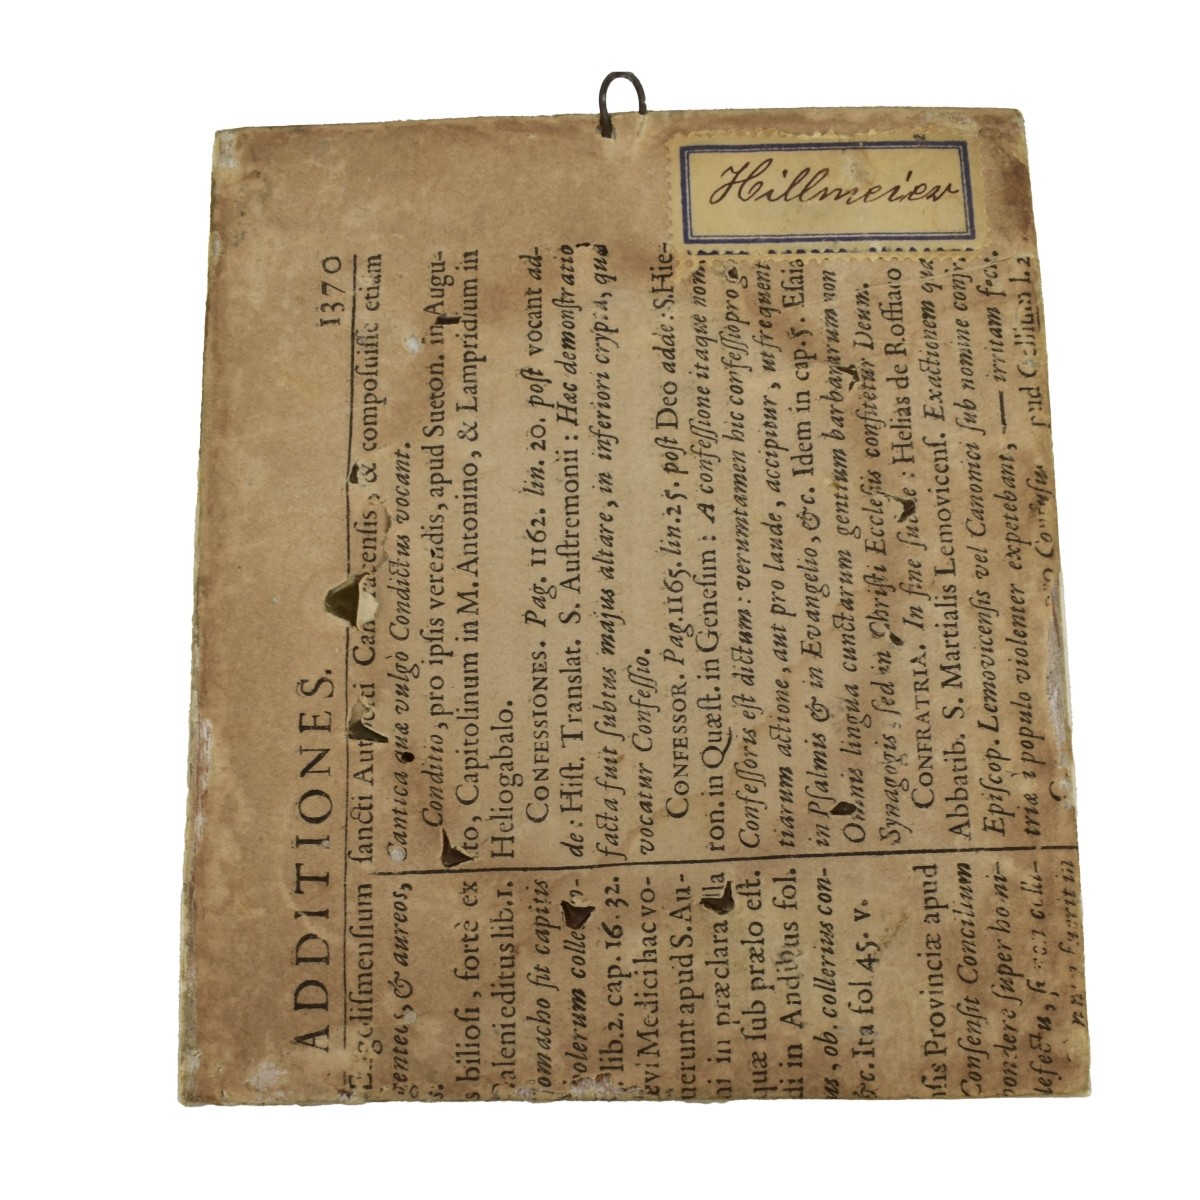 Hillmeier
ADDITIONES.
1370
sancti Au Cam acensis, & composuisse etiam
Cantica quæ vulgò Condictus vocant.
Conditio, pro ipsis veredis, apud Sueton. in Augu-
to, Capitolinum in M. Antonino, & Lampridium in
Heliogabalo.
CONFESSIONES. Pag. 1162. lin. 20. post vocant ad-
de: Hist. Translat. S. Austremonii: Hæc demonstratio
facta fuit subtus majus altare, in inferiori crypta, quæ
vocatur Confessio.
CONFESSOR. Pag. 1165. lin. 25. post Deo adde: S. Hie-
ron. in Quæst. in Genesim: A confessione itaque nom.
Confessoris est dictum: verumtamen hic confessio pro
tiarum actione, aut pro laude, accipitur, ut frequent
in Psalmis & in Evangelio, &c. Idem in cap. 5. Esaiæ
Omnis lingua cunctarum gentium barbararum non
Synagogis, sed in Christi Ecclesiis confitetur Deum.
CONFRATRIA. In fine adde: Helias de Roffiaco
Abbatib. S. Martialis Lemovicens. Exactionem quæ
Episcop. Lemovicensis vel Canonici sub nomine confr.
triæ à populo violenter expetebant, — irritam
gdismensium
gentes, & aureos,
s.
s biliosi, fortè ex
Galeni editus lib. 1.
stomacho fit capitis
lib. 2. cap. 16. 32.
ævi Medici hac vo-
uerunt apud S. Au-
ni in præclara illa
quæ sub prælo est.
di in Andibus fol.
as, ob. collerius con-
&c. Ita fol. 45. v.
ssis Provinciæ apud
Consensit Concilium
pondere super ho